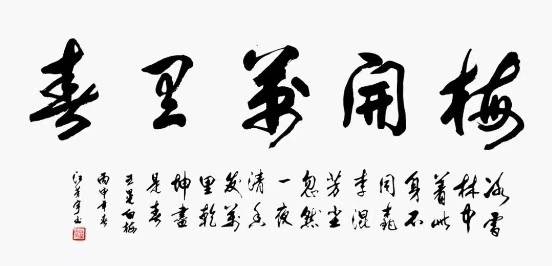 梅開萬里春
冰雪
林中
着此
身不
同桃
李混
芳尘
忽然
一夜
清香
发萬
里乾
坤盡
是春
王冕白梅
丙申年春